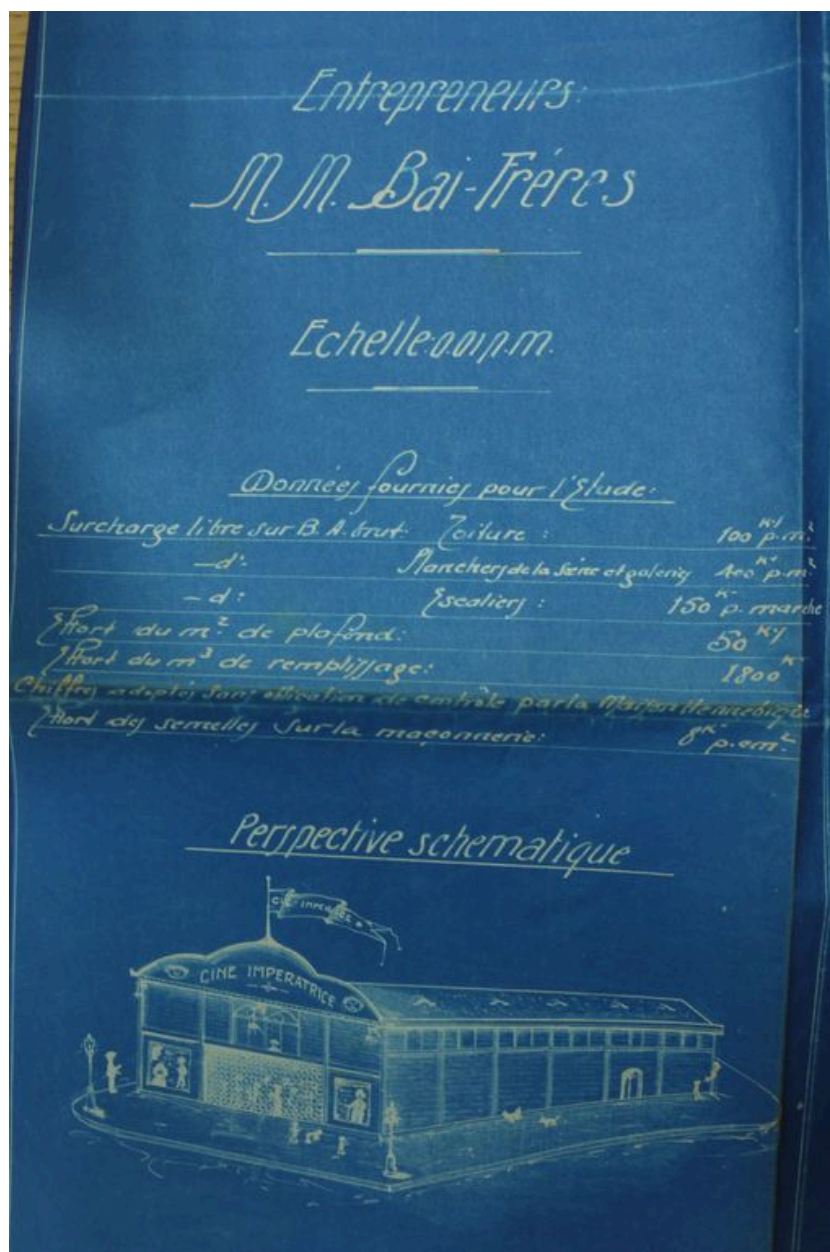 Entrepreneurs:
M. M. Bai-Fréres
Echelle: 0.01 p.m.
Données fournies pour l'Etude:
Surcharge libre sur B. A. brut Toiture: 100 Kg p.m.²
— d°: Planchers de la Scène et galeries 400 K° p.m.²
— d: Escaliers: 150 K p. marche
Effort du m² de plafond: 50 Kg
Effort du m³ de remplissage: 1800 K
Chiffres adoptés sans obligation de contrôle par la Maison Hennebique
Effort des semelles sur la maçonnerie: 8K p.cm²
Perspective schematique
CINE IMPERATRICE
CINE IMPERATRICE